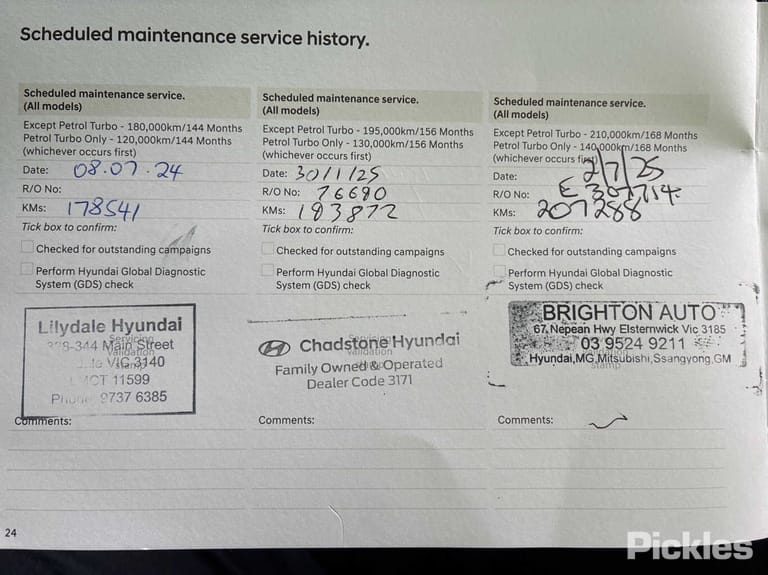 Scheduled maintenance service history.
Scheduled maintenance service.
(All models)
Except Petrol Turbo - 180,000km/144 Months
Petrol Turbo Only - 120,000km/144 Months
(whichever occurs first)
Date: 08.07.24
R/O No:
KMs: 178541
Tick box to confirm:
Checked for outstanding campaigns
Perform Hyundai Global Diagnostic
System (GDS) check
Servicing
validation
stamp
Lilydale Hyundai
-344 Main Street
VIC 3140
11599
9737 6385
Comments:
Scheduled maintenance service.
(All models)
Except Petrol Turbo - 195,000km/156 Months
Petrol Turbo Only - 130,000km/156 Months
(whichever occurs first)
Date: 30/1/25
R/O No: 76690
KMs: 193872
Tick box to confirm:
Checked for outstanding campaigns
Perform Hyundai Global Diagnostic
System (GDS) check
Servicing
validation
stamp
Chadstone Hyundai
Family Owned & Operated
Dealer Code 3171
Comments:
Scheduled maintenance service.
(All models)
Except Petrol Turbo - 210,000km/168 Months
Petrol Turbo Only - 140,000km/168 Months
(whichever occurs first)
Date: 2/7/25
R/O No: E307714
KMs: 207288
Tick box to confirm:
Checked for outstanding campaigns
Perform Hyundai Global Diagnostic
System (GDS) check
stamp
BRIGHTON AUTO
67 Nepean Hwy Elsternwick Vic 3185
03 9524 9211
Hyundai,MG,Mitsubishi,Ssangyong,GM
Comments:
24
Pickles